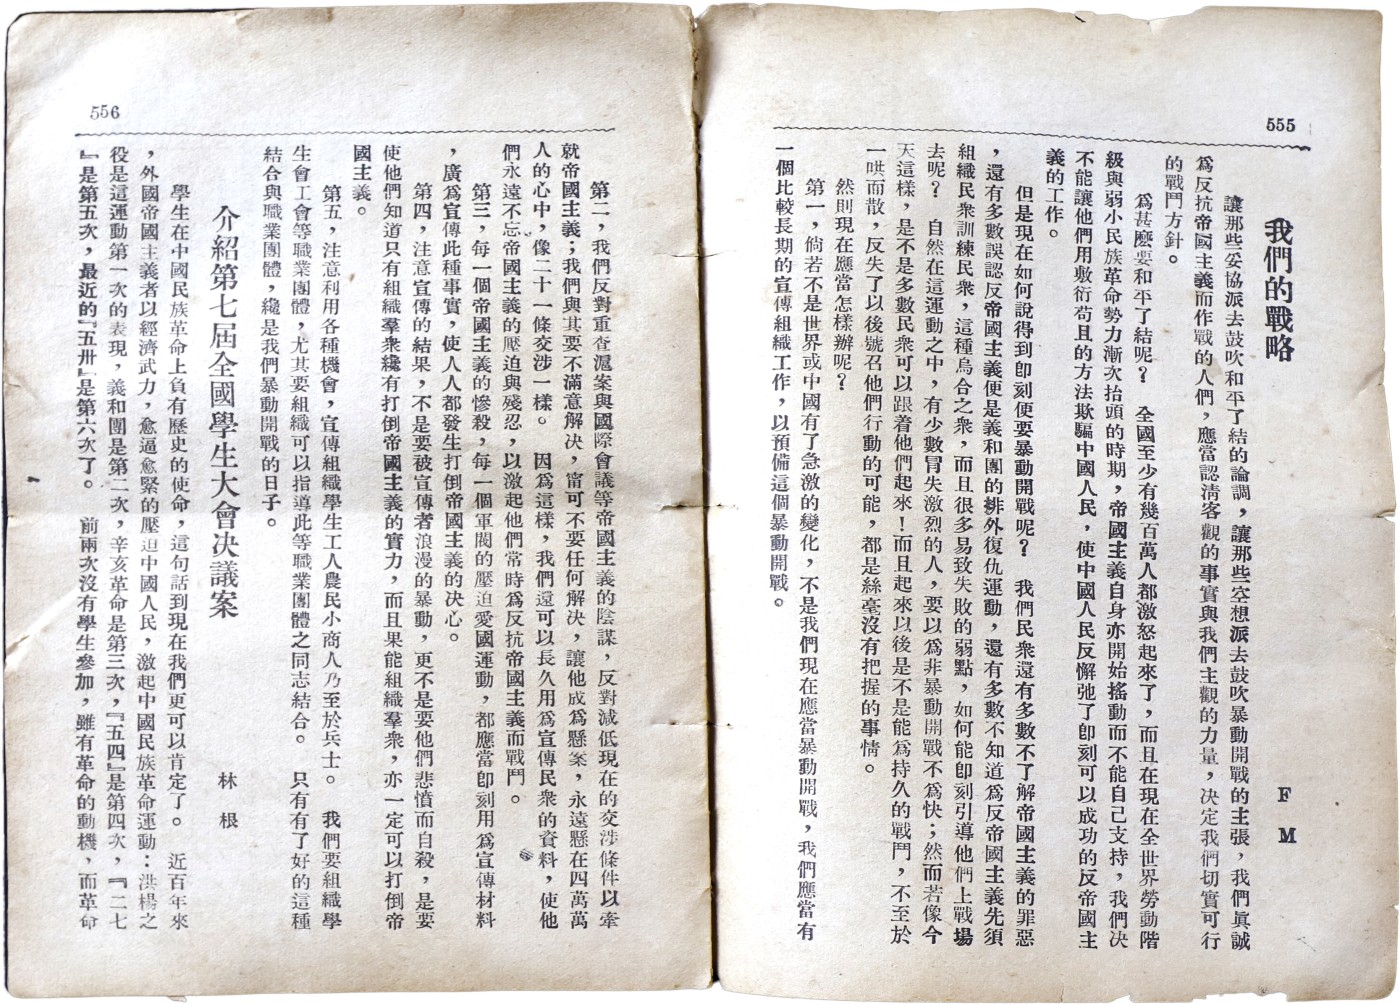 555
我們的戰略
F M
讓那些妥協派去鼓吹和平了結的論調，讓那些空想派去鼓吹暴動開戰的主張，我們眞誠
爲反抗帝國主義而作戰的人們，應當認淸客觀的事實與我們主觀的力量，决定我們切實可行
的戰鬥方針。
爲甚麽要和平了結呢？　全國至少有幾百萬人都激怒起來了，而且在現在全世界勞動階
級與弱小民族革命勢力漸次抬頭的時期，帝國主義自身亦開始搖動而不能自己支持，我們决
不能讓他們用敷衍苟且的方法欺騙中國人民，使中國人民反懈弛了卽刻可以成功的反帝國主
義的工作。
但是現在如何說得到卽刻便要暴動開戰呢？　我們民衆還有多數不了解帝國主義的罪惡
，還有多數誤認反帝國主義便是義和團的排外復仇運動，還有多數不知道爲反帝國主義先須
組織民衆訓練民衆，這種烏合之衆，而且很多易致失敗的弱點，如何能卽刻引導他們上戰場
去呢？　自然在這運動之中，有少數冒失激烈的人，要以爲非暴動開戰不爲快；然而若像今
天這樣，是不是多數民衆可以跟着他們起來！而且起來以後是不是能爲持久的戰鬥，不至於
一哄而散，反失了以後號召他們行動的可能，都是絲毫沒有把握的事情。
然則現在應當怎樣辦呢？
第一，倘若不是世界或中國有了急激的變化，不是我們現在應當暴動開戰，我們應當有
一個比較長期的宣傳組織工作，以預備這個暴動開戰。
556
第二，我們反對重查滬案與國際會議等帝國主義的陰謀，反對減低現在的交涉條件以牽
就帝國主義；我們與其要不滿意解决，甯可不要任何解决，讓他成爲懸案，永遠懸在四萬萬
人的心中，像二十一條交涉一樣。　因爲這樣，我們還可以長久用爲宣傳民衆的資料，使他
們永遠不忘帝國主義的壓迫與殘忍，以激起他們常時爲反抗帝國主義而戰鬥。
第三，每一個帝國主義的慘殺，每一個軍閥的壓迫愛國運動，都應當卽刻用爲宣傳材料
，廣爲宣傳此種事實，使人人都發生打倒帝國主義的决心。
第四，注意宣傳的結果，不是要被宣傳者浪漫的暴動，更不是要他們悲憤而自殺，是要
使他們知道只有組織羣衆纔有打倒帝國主義的實力，而且果能組織羣衆，亦一定可以打倒帝
國主義。
第五，注意利用各種機會，宣傳組織學生工人農民小商人乃至於兵士。　我們要組織學
生會工會等職業團體，尤其要組織可以指導此等職業團體之同志結合。　只有有了好的這種
結合與職業團體，纔是我們暴動開戰的日子。
介紹第七屆全國學生大會决議案
林根
學生在中國民族革命上負有歷史的使命，這句話到現在我們更可以肯定了。　近百年來
，外國帝國主義者以經濟武力，愈逼愈緊的壓迫中國人民，激起中國民族革命運動：洪楊之
役是這運動第一次的表現，義和團是第二次，辛亥革命是第三次，『五四』是第四次，『二七
』是第五次，最近的『五卅』是第六次了。　前兩次沒有學生參加，雖有革命的動機，而革命